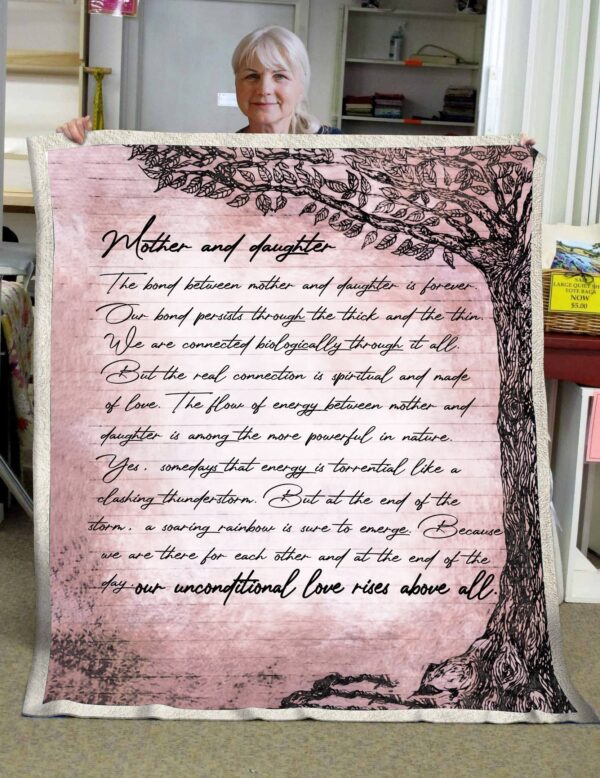 Mother and daughter
The bond between mother and daughter is forever.
Our bond persists through the thick and the thin.
We are connected biologically through it all.
But the real connection is spiritual and made
of love. The flow of energy between mother and
daughter is among the more powerful in nature.
Yes, somedays that energy is torrential like a
clashing thunderstorm. But at the end of the
storm, a soaring rainbow is sure to emerge. Because
we are there for each other and at the end of the
day our unconditional love rises above all.
LARGE QUILT
TOTE BAGS
NOW
$5.00